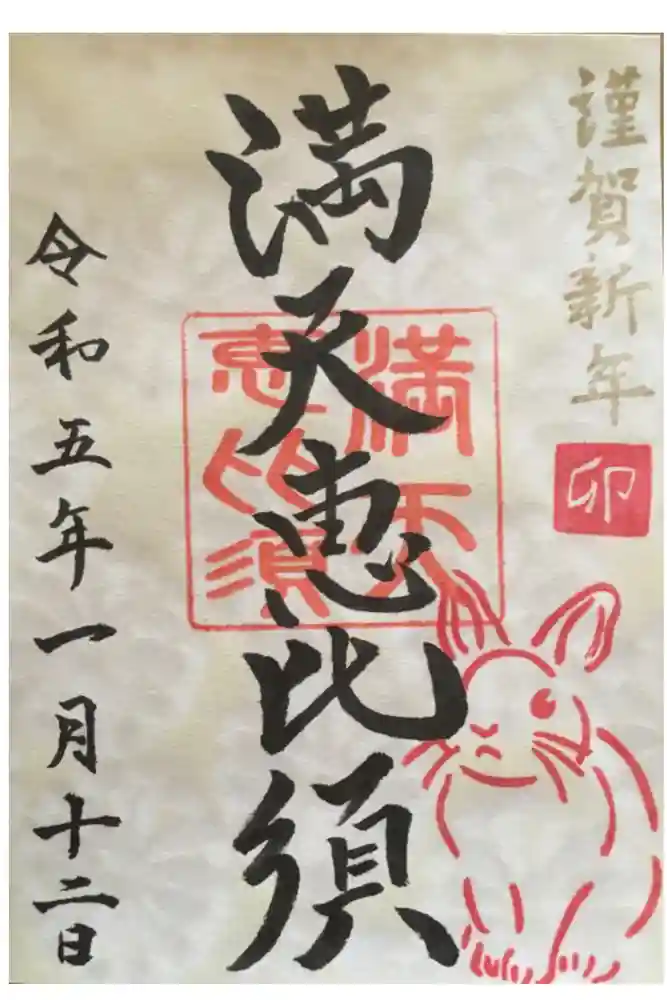 謹賀新年
卯
満天恵比須
満天
恵比須
令和五年一月十二日